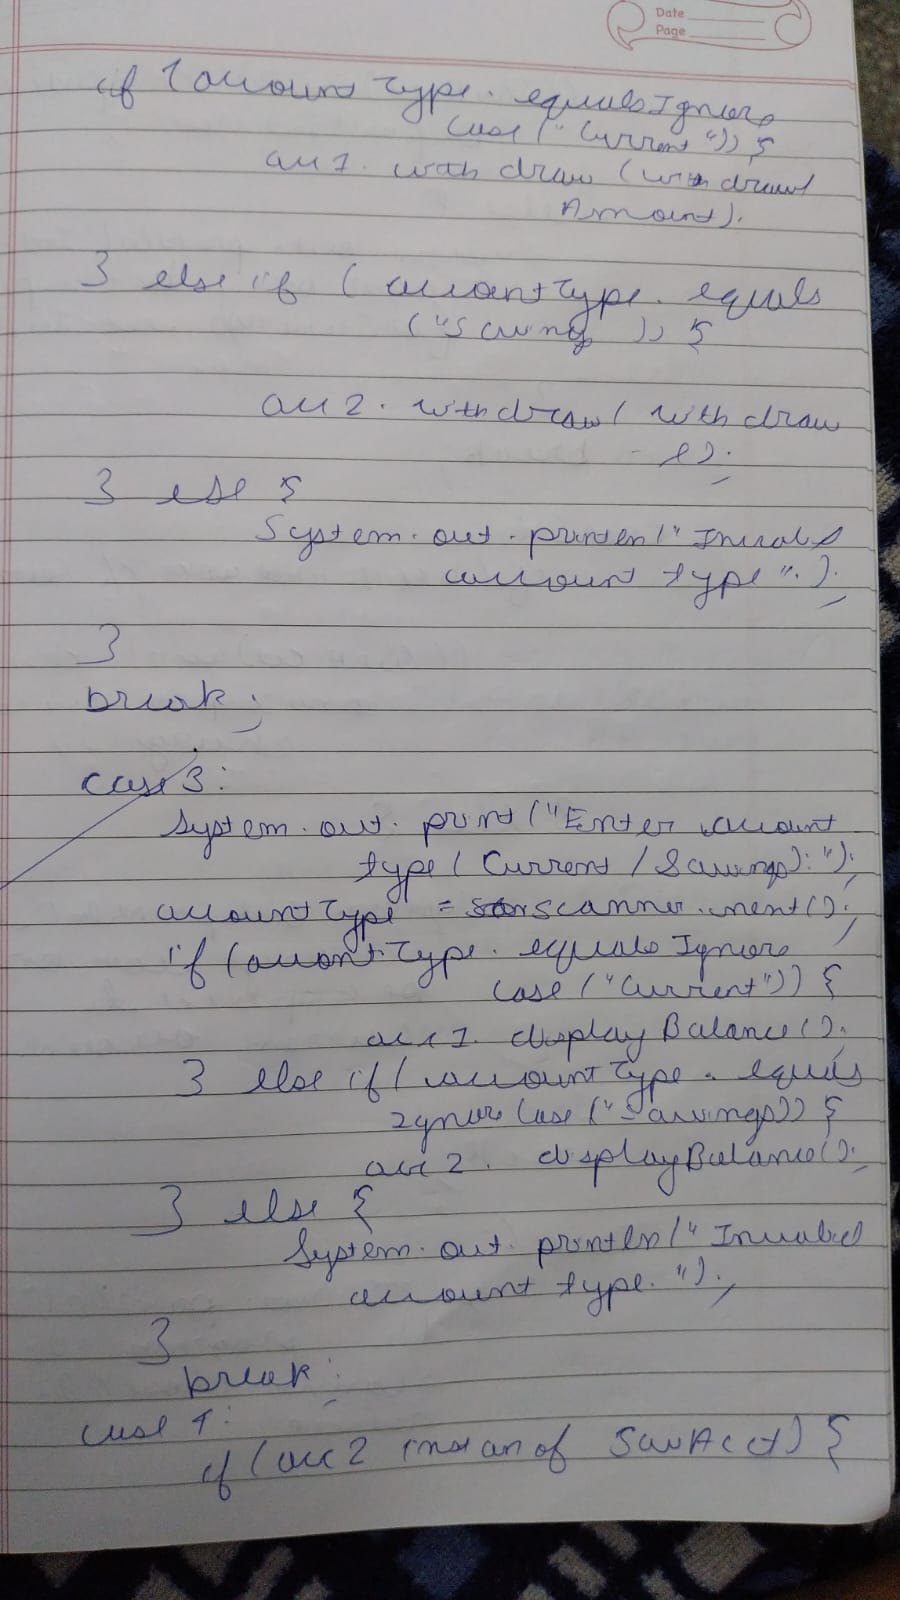 Date
Page
if (accountType. equalsIgnore
Case ("Current")) {
acc 1. withdraw (withdrawl
Amount).
} else if ( accountType. equals
("Savings )) {
acc 2. withdraw( withdraw
- l);
} else {
System.out.println("Invalid
account type".);
}
break;
case 3:
System.out.print("Enter account
type ( Current / Savings): ");
accountType = scanner.next();
if (accontType. equalsIgnore
Case ("Current")) {
acc 1. displayBalance();
} else if( accountType. equals
Ignore Case ("Savings)) {
acc 2. displayBalance();
} else {
System.out.println("Invalid
account type.");
}
break;
case 4:
if (acc 2 instanof SavAcct) {